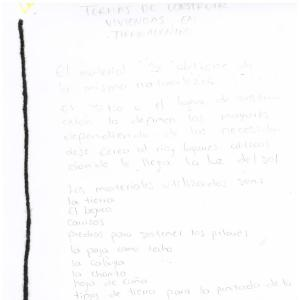 FORMAS DE CONSTRUIR
VIVIENDAS EN
TIERRADENTRO
El material se obtiene de
la misma naturaleza
El sitio o el lugar de
la definen los mayores
dependiendo de las necesida
des: cerca al río, lugares
donde le llega la luz del sol
Los materiales utilizados son:
la tierra
El bejuco
carrizos
piedras para sostener los pilares
la paja como techo
la cabuya
la chonta
hoja de caña
tipos de tierra para la pintada de la